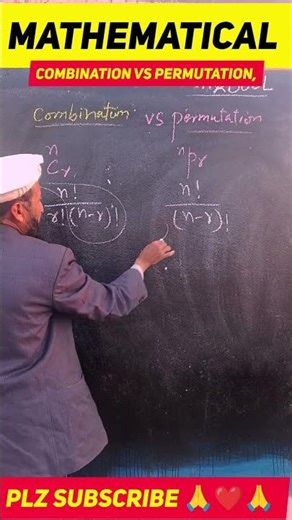 MATHEMATICAL
COMBINATION VS PERMUTATION,
Combination vs permutation
nCr nPr
n! n!
r!(n-r)! (n-r)!
PLZ SUBSCRIBE 🙏❤️🙏